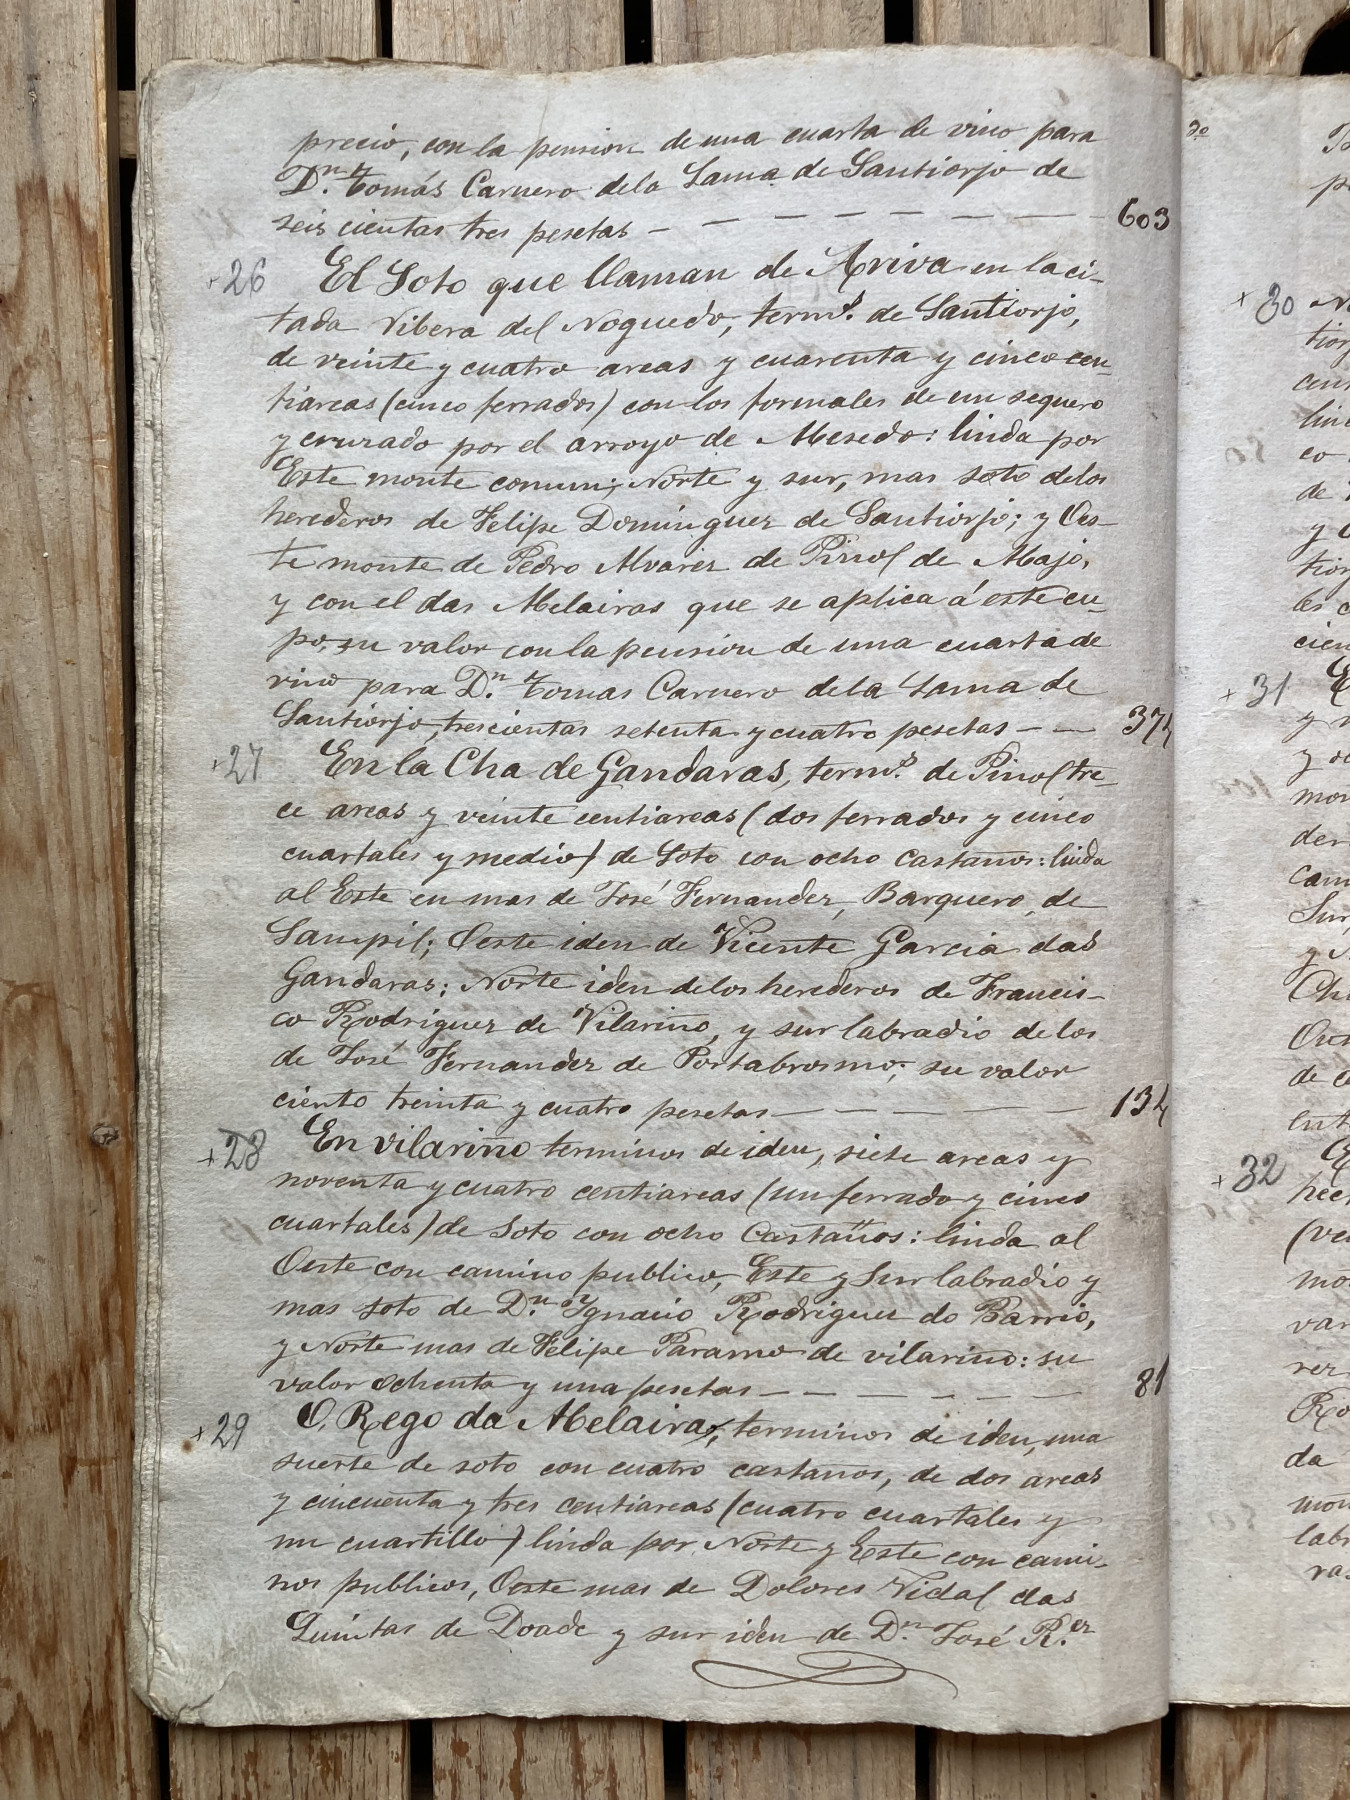 precio, con la pension de una cuarta de vino para
D.n Tomás Carnero dela Lama de Santiorjo de
seis cientas tres pesetas - - - - - - - 603
+ 26 El Soto que llaman de Arriva en la ci-
tada Ribera del Noguedo, term.s de Santiorjo,
de veinte y cuatro areas y cuarenta y cinco cen-
tiareas (cinco ferrados) con los formales de un sequero
y cruzado por el arroyo de Mesedo: linda por
Este monte comun; Norte y sur, mas soto delos
herederos de Felipe Dominguez de Santiorjo; y Oes-
te monte de Pedro Alvarez de Pinol de Majo,
y con el das Melairas que se aplica á este cu-
po, su valor con la pension de una cuarta de
vino para D.n Tomas Carnero dela Lama de
Santiorjo, trescientas setenta y cuatro pesetas - - 374
+ 27 En la Cha de Gandaras, term.s de Pinol tre-
ce areas y veinte centiareas (dos ferrados y cinco
cuartales y medio) de Soto con ocho castaños: linda
al Este en mas de José Fernandez, Barquero, de
Sampil; Oeste iden de Vicente Garcia das
Gandaras; Norte iden delos herederos de Francis-
co Rodriguez de Vilariño, y sur labradio de los
de José Fernandez de Portabrosmo; su valor
ciento treinta y cuatro pesetas - - - - - 134
+ 28 En vilariño terminos de iden, siete areas y
noventa y cuatro centiareas (un ferrado y cinco
cuartales) de Soto con ocho Castaños: linda al
Oeste con camino publico, Este y Sur labradio y
mas soto de D.n Ygnacio Rodriguez do Barrio,
y Norte mas de Felipe Paramo de vilariño: su
valor ochenta y una pesetas - - - - - - 81
+ 29 O Rego da Melaira, terminos de iden, una
suerte de soto con cuatro castaños, de dos areas
y cincuenta y tres centiareas (cuatro cuartales y
un cuartillo) linda por Norte y Este con cami-
nos publicos, Oeste mas de Dolores Vidal das
Quintas de Doade y sur iden de D.n José R.ez
+ 30
+ 31
+ 32